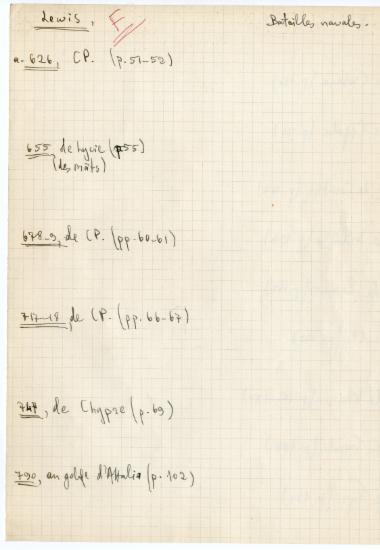 Lewis, F Batailles navales.
a. 626, CP. (p. 51-52)
655 de Lycie (p55)
(des mâts)
678-9, de CP. (pp. 60-61)
717-18, de CP. (pp. 66-67)
747, de Chypre (p. 69)
790, au golfe d'Attalia (p. 102)